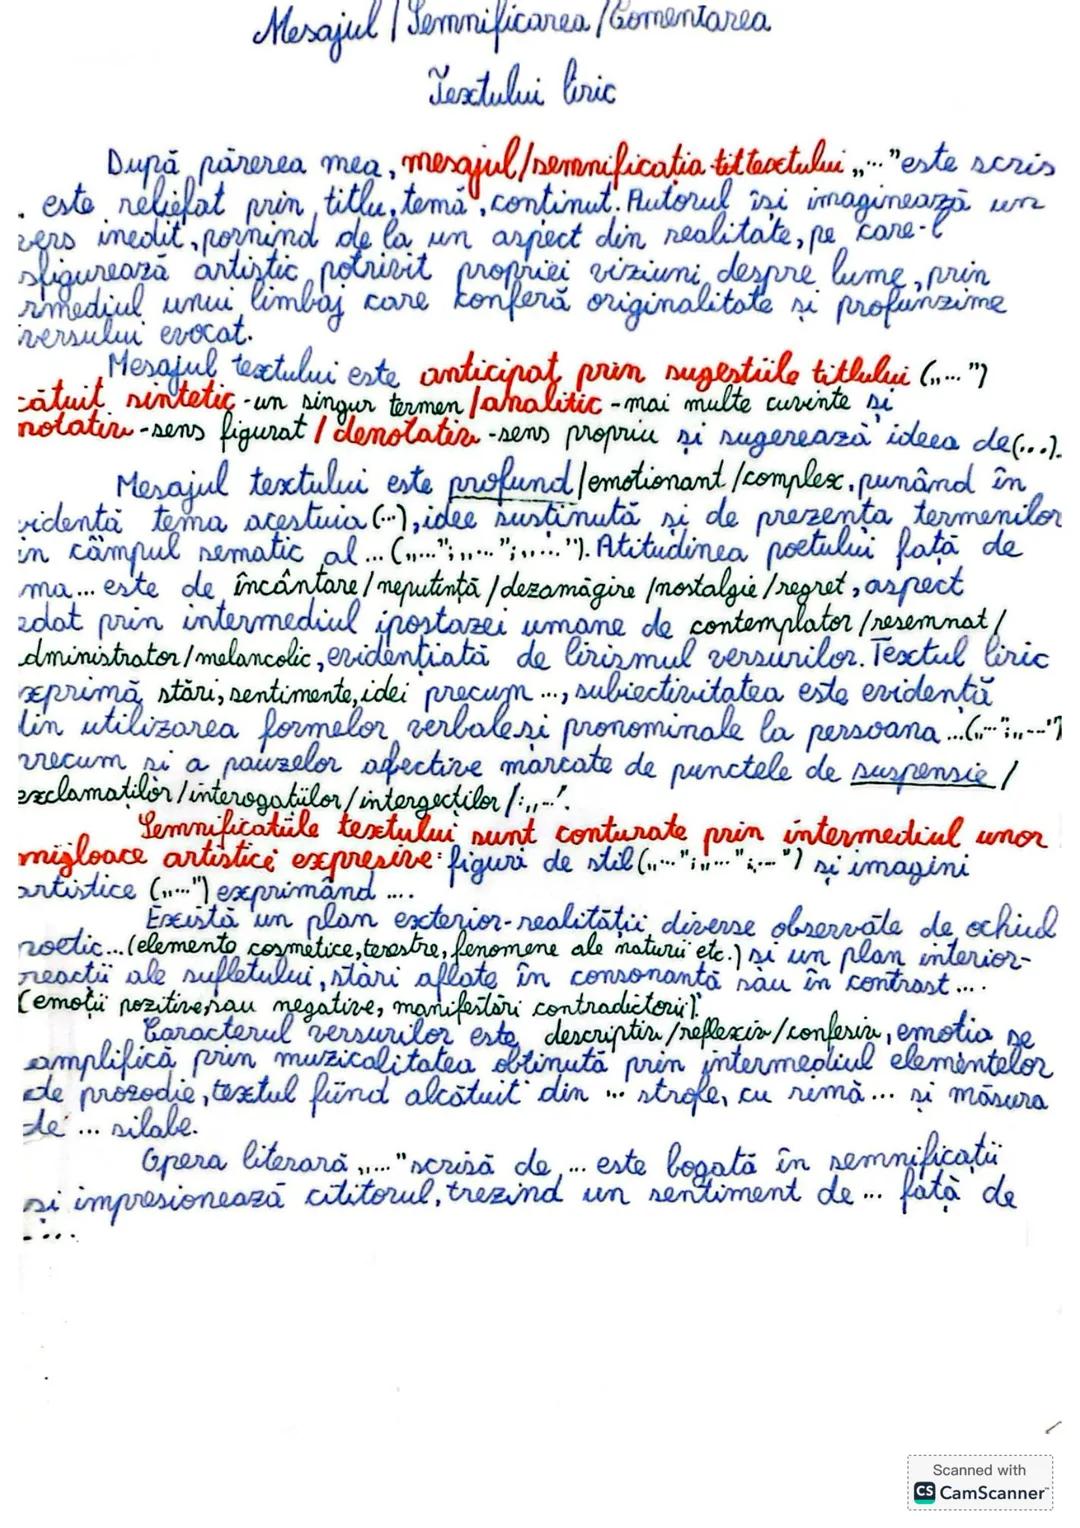 Mesajul / Semnificarea / Comentarea
Textului liric
După părerea mea, mesajul/semnificația textului „..." este scris
. este reliefat prin titlu, temă, conținut. Autorul își imaginează un
vers inedit, pornind de la un aspect din realitate, pe care-l
sfigurează artistic potrivit propriei viziuni despre lume, prin
rmediul unui limbaj care conferă originalitate și profunzime
versului evocat.
Mesajul textului este anticipat prin sugestiile titlului („...")
cătuit sintetic - un singur termen / analitic - mai multe cuvinte și
notativ - sens figurat / denotativ - sens propriu și sugerează ideea de (...).
Mesajul textului este profund/emoționant/complex, punând în
vidență tema acestuia (...), idee susținută și de prezența termenilor
in câmpul sematic al ... („..."; „..."; „..."). Atitudinea poetului față de
ma ... este de încântare/neputință/dezamăgire/nostalgie/regret, aspect
edat prin intermediul ipostazei umane de contemplator/resemnat/
dministrator/melancolic, evidențiată de lirismul versurilor. Textul liric
xprimă stări, sentimente, idei precum ..., subiectivitatea este evidentă
din utilizarea formelor verbale și pronominale la persoana ... („..."; „...")
precum și a pauzelor afective marcate de punctele de suspensie /
exclamațiilor/interogațiilor/intergecțiilor /: „...".
Semnificațiile textului sunt conturate prin intermediul unor
migloace artistice expresive: figuri de stil („..."; „..."; „...") și imagini
artistice („...") exprimând ....
Există un plan exterior-realității diverse observate de ochiul
poetic... (elemente cosmetice, terestre, fenomene ale naturii etc.) și un plan interior-
reacții ale sufletului, stări aflate în consonanță sau în contrast ....
(emoții pozitive sau negative, manifestări contradictorii).
Caracterul versurilor este descriptiv/reflexiv/confesiv, emoția se
amplifică prin muzicalitatea obținută prin intermediul elementelor
de prozodie, textul fiind alcătuit din ... strofe, cu rimă ... și măsura
de ... silabe.
Opera literară „..." scrisă de ... este bogată în semnificații
și impresionează cititorul, trezind un sentiment de ... față de
....
Scanned with
CS CamScanner